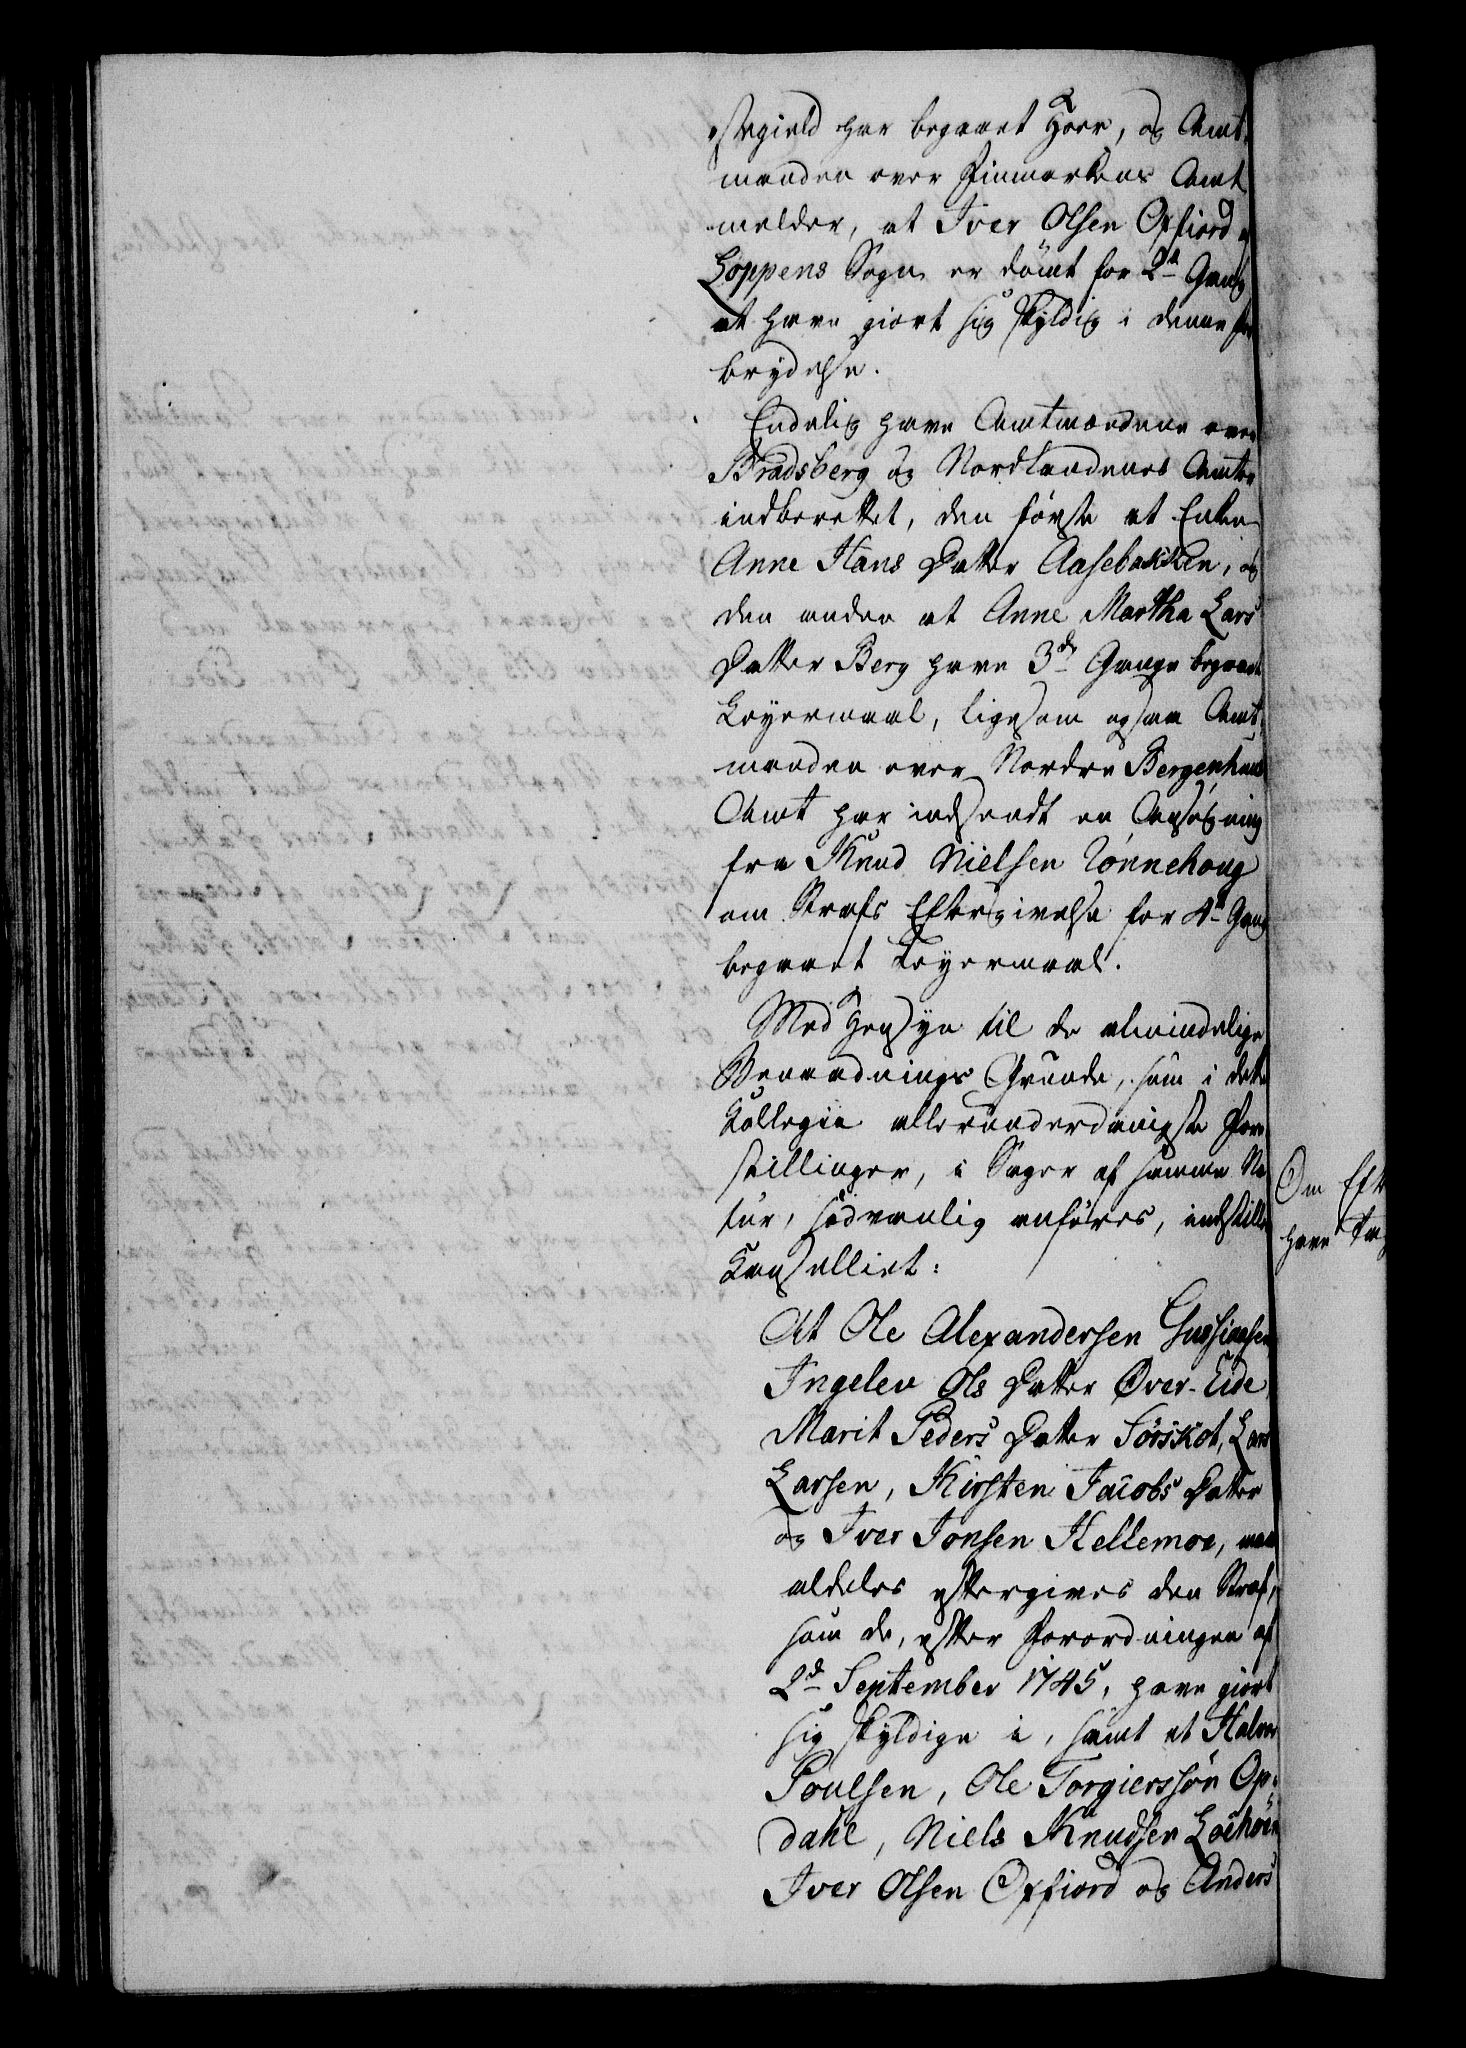 stegield har begaaet Hoer, og Amt-
manden over Finmarkens Amt
melder, at Iver Olsen Oxfiord
Loppens Sogn er dömt for 2den Gang
at have giort sig skyldig i denne for
brydelse.
Endelig have Amtmændene over
Bradsberg og Nordlandenes Amter
indberettet, den første at Enken
Anne Hans Datter Aasebakken, og
den anden at Anne Martha Lars
Datter Berg have 3de Gange begaaet
Leyermaal, ligesom ogsaa Amt-
manden over Nordre Bergenhuus
Amt har indsendt en Ansøgning
fra Knud Nielsen Tønnehoug
om Strafs Eftergivelse for 4de Gang
begaaet Leyermaal.
Med Hensyn til de almindelige
Benaadnings Grunde, som i dette
Collegii allerunderdanigste Fore-
stillinger, i Sager af samme Na
tur, sædvanlig anføres, indstiller
Cancelliet:
At Ole Alexandersen
Ingelev Ols Datter Över-Eide
Marit Peders Datter Sörskot, Lars
Larsen, Kirsten Jacobs Datter
og Iver Jonsen Hellemoe, maa
aldeles eftergives den Straf,
som de, efter Forordningen af
2d September 1745, have giort
sig skyldige i, samt at Halvor
Poulsen, Ole Torgierssön Op-
dahl, Niels Knudsen
Iver Olsen Oxfiord og Anders
Om Eft
have